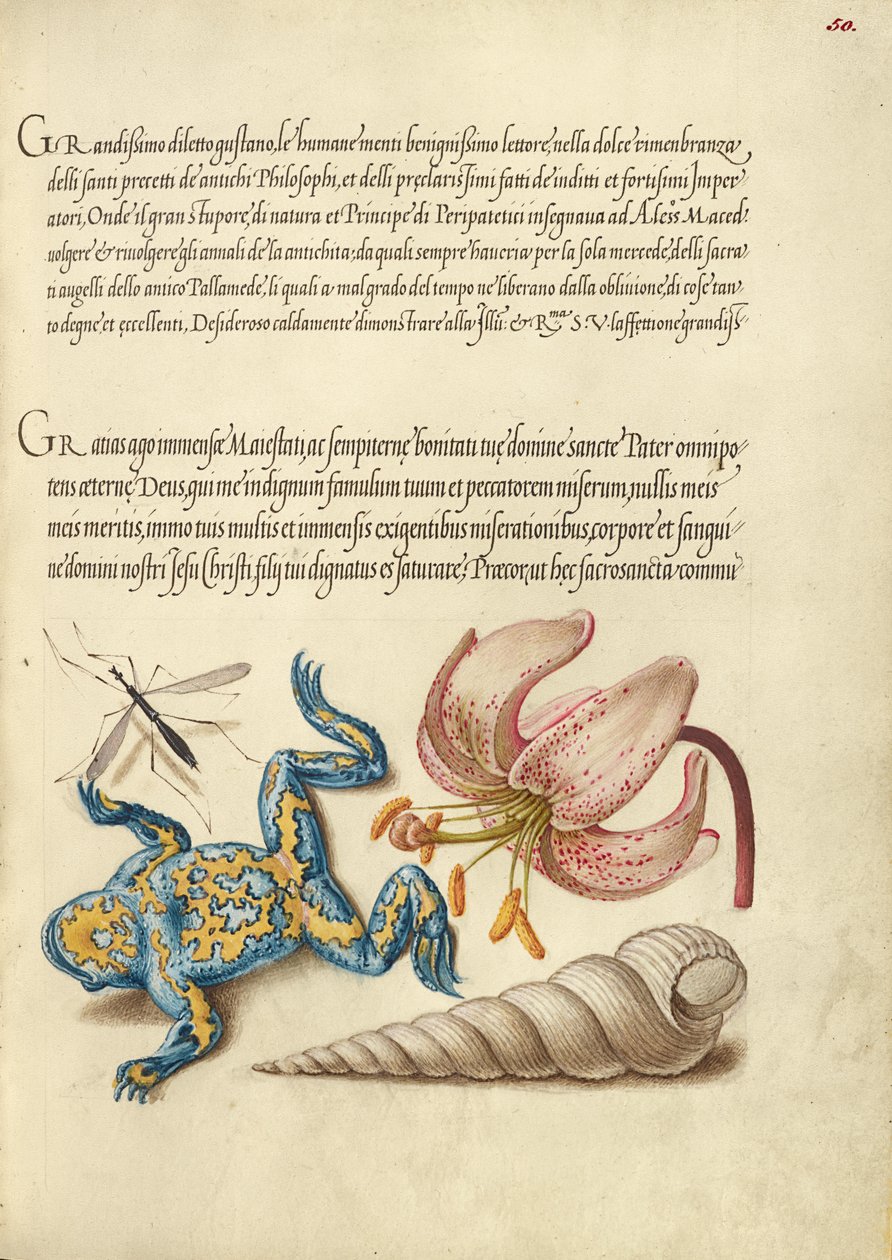 50.
GRandissimo diletto gustano, le humane menti benignissimo lettore, nella dolce rimenbranza,
delli santi precetti de antichi Philosophi, et delli pręclarissimi fatti de inditti et fortisimi Imper=
atori, Onde il gran stupore, di natura et Principe di Peripatetici insegnaua ad Aless Maced:
volgere & riuolgere gli annali de la antichita; da quali sempre haueria per la sola mercede, delli sacra=
ti augelli dello antico Pallamede, li quali a mal grado del tempo ne liberano dalla obliuione, di cose tan=
to degne, et ęccellenti, Desideroso caldamente dimonstrare alla Illu: & R.ma S: V. l'affęttione grandiss=
GRatias ago immensæ Maiestati, ac sempiternę bonitati tuę domine sancte Pater omnipo=
tens æternę Deus, qui me indignum famulum tuum et peccatorem miserum, nullis meis
meis meritis, immo tuis multis et immensis exigentibus miserationibus, corpore et sangui=
ne domini nostri Jesu Christi, filij tui dignatus es saturare; Præcor, ut hęc sacrosancta commu=